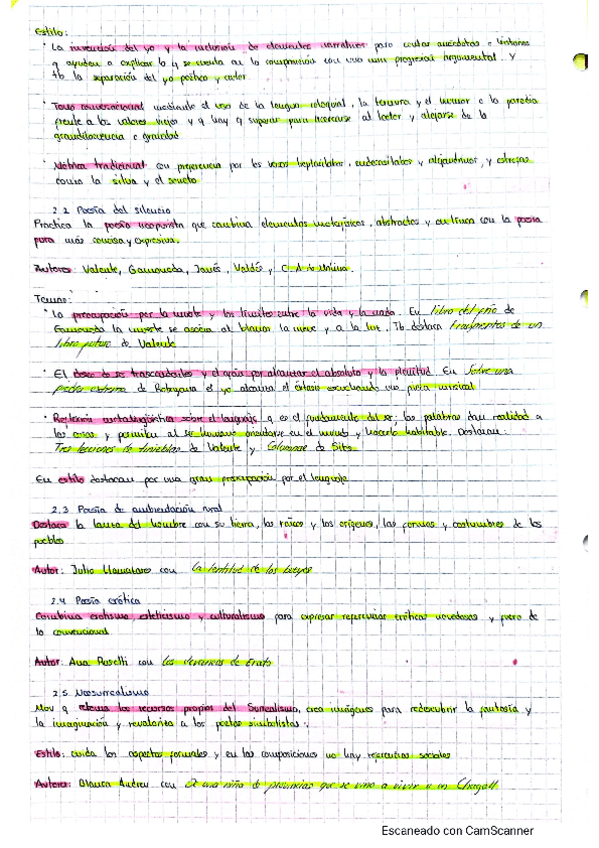 Estilo:
· La invención del yo y la inclusión de elementos narrativos para contar anécdotas e historias
q ayudan a explicar lo q se cuenta en la composición con una progresión argumental. Y
tb la separación del yo poético y autor
· Tono conversacional mediante el uso de la lengua coloquial, la ternura y el humor o la parodia
frente a los valores viejos y q hay q superar para acercarse al lector y alejarse de la
grandilocuencia o gravedad
· Métrica tradicional con preferencia por los versos heptasílabos, endecasílabos y alejandrinos, y estrofas
como la silva y el soneto
2.2 Poesía del silencio
Practica la poesía neopurista que combina elementos metafísicos, abstractos y en línea con la poesía
pura más concisa y expresiva.
Autores: Valente, Gamoneda, Janés, Valdés y
Temas:
· La preocupación por la muerte y los límites entre la vida y la nada. En Libro del frío de
Gamoneda la muerte se asocia al blancor, la nieve y a la luz. Tb destaca Fragmentos de un
libro futuro de Valente
· El deseo de ser trascendentales y el ansia por alcanzar el absoluto y la plenitud. En Sobre una
de el yo alcanza el éxtasis escuchando una pieza musical
· Reflexión metalingüística sobre el lenguaje q es el fundamento del ser, las palabras dan realidad a
las cosas y permiten al ser humano en el mundo y hacerlo habitable. Destacan:
Tres lecciones de tinieblas de Valente y Columnae de Siles
En estilo destacan por una gran preocupación por el lenguaje
2.3 Poesía de ambientación rural
Destaca la del hombre con su tierra, las raíces y los orígenes, las formas y costumbres de los
pueblos
Autor: Julio Llamazares con La lentitud de los bueyes
2.4 Poesía erótica
Combina erotismo, esteticismo y culturalismo para expresar experiencias eróticas novedosas y fuera de
lo convencional
Autor: Ana Rosetti con Los devaneos de Erato
2.5 Neosurrealismo
Mov q retoma los recursos propios del Surrealismo, crea imágenes para redescubrir la fantasía y
la imaginación y revaloriza a los poetas simbolistas.
Estilo: cuida los aspectos formales y en las composiciones no hay sociales
Autora: Blanca Andreu con De una niña de provincias que se vino a vivir a un Chagall
Escaneado con CamScanner